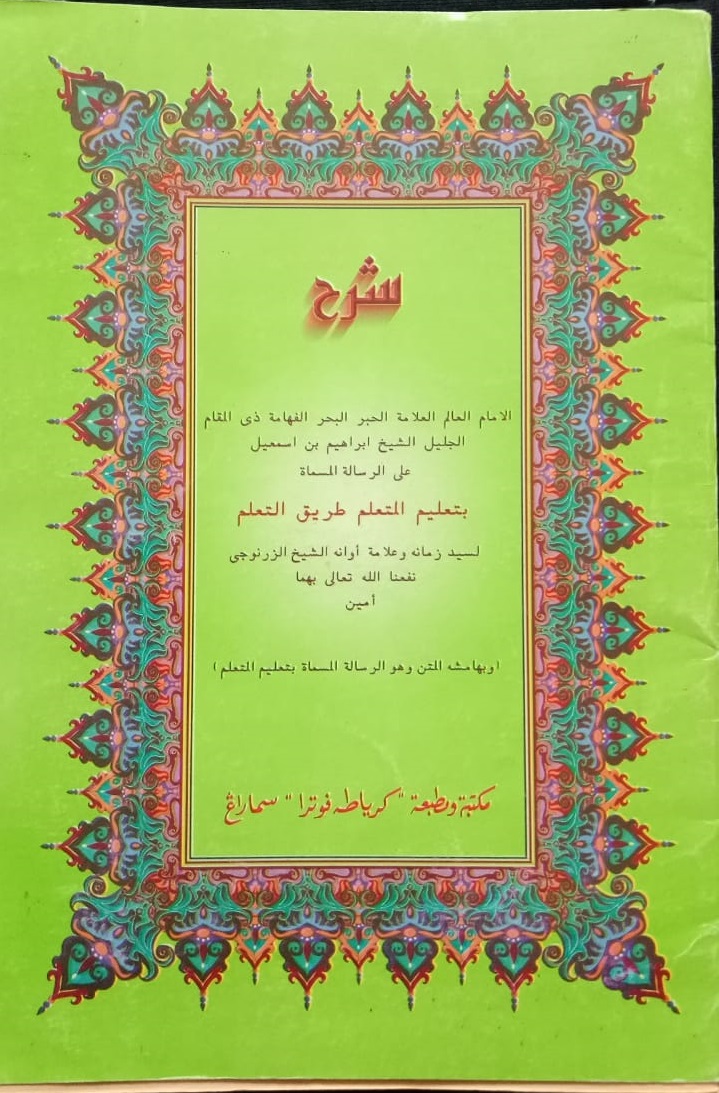 شرح
الامام العالم العلامة الحبر البحر الفهامة ذى المقام
الجليل الشيخ ابراهيم بن اسمعيل
على الرسالة المسماة
بتعليم المتعلم طريق التعلم
لسيد زمانه وعلامة أوانه الشيخ الزرنوجى
نفعنا الله تعالى بهما
أمين
(وبهامشه المتن وهو الرسالة المسماة بتعليم المتعلم)
مكتبة ومطبعة "كرياطه فوترا" سماراڠ